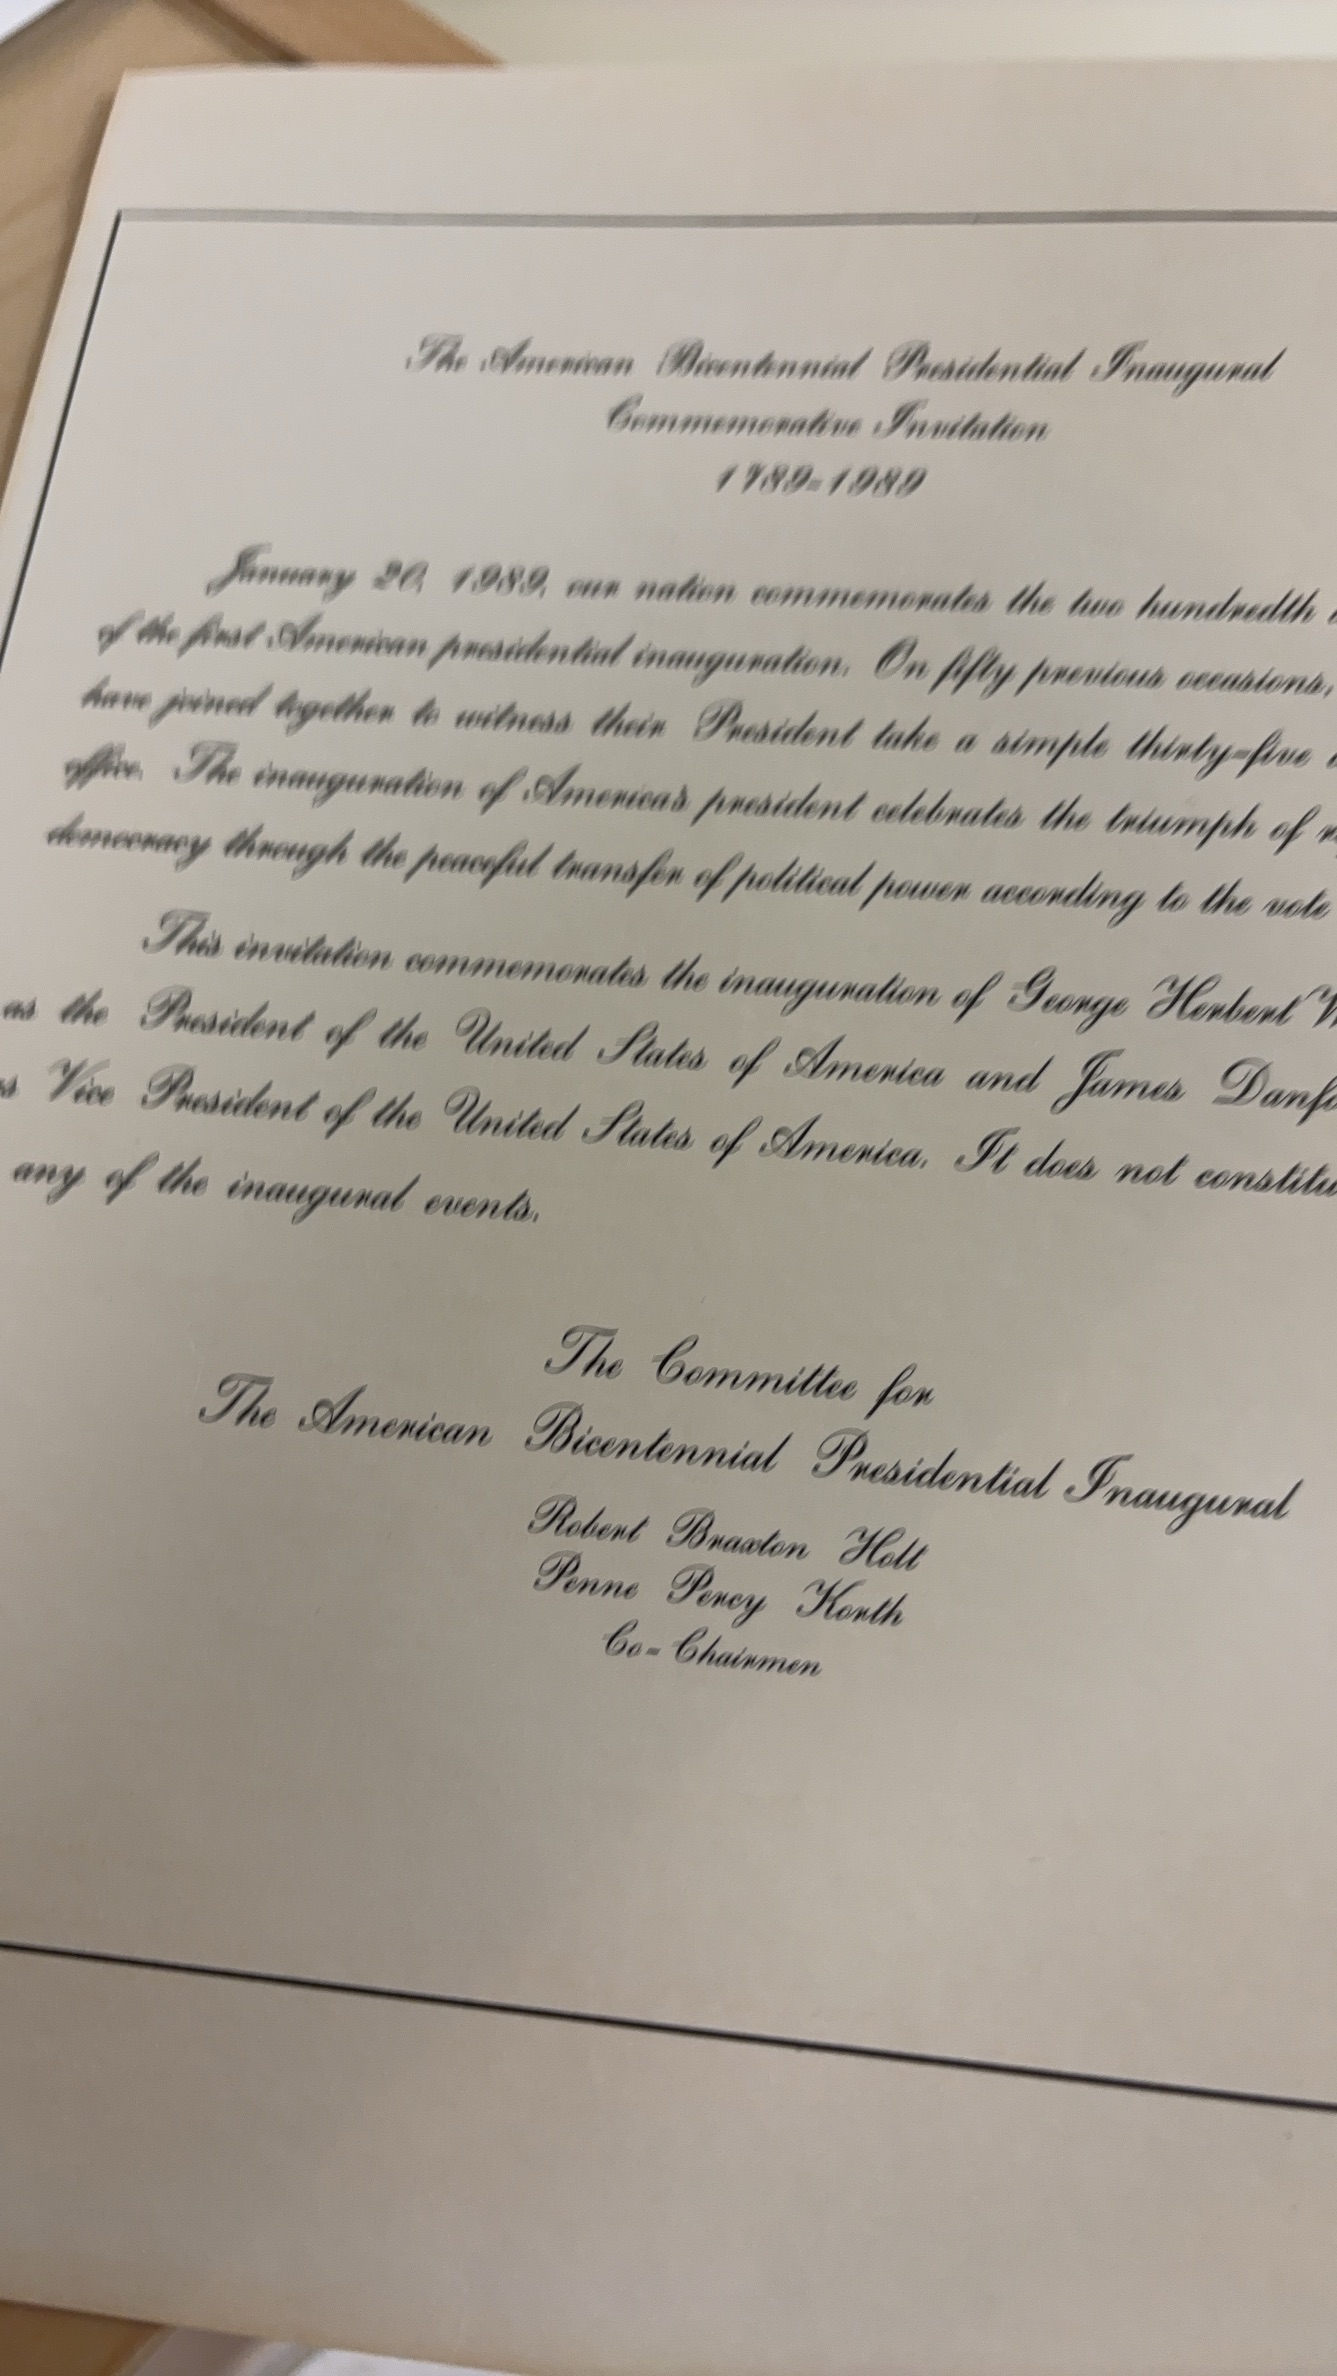 The American Bicentennial Presidential Inaugural
Commemorative Invitation
1789-1989
January 20, 1989, our nation commemorates the two hundredth
of the first American presidential inauguration. On fifty previous occasions,
have joined together to witness their President take a simple thirty-five
office. The inauguration of America's president celebrates the triumph of
democracy through the peaceful transfer of political power according to the vote
This invitation commemorates the inauguration of George Herbert
as the President of the United States of America and James
Vice President of the United States of America. It does not
any of the inaugural events.
The Committee for
The American Bicentennial Presidential Inaugural
Robert Braxton Holt
Penne Percy Korth
Co-Chairmen